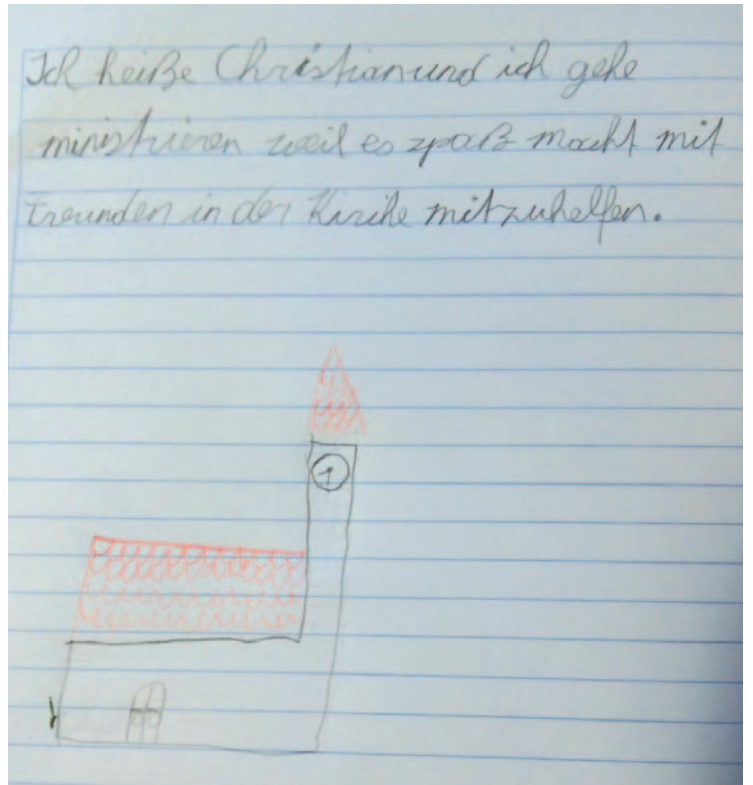 Ich heiße Christian und ich gehe
ministrieren weil es spaß macht mit
Freunden in der Kirche mitzuhelfen.